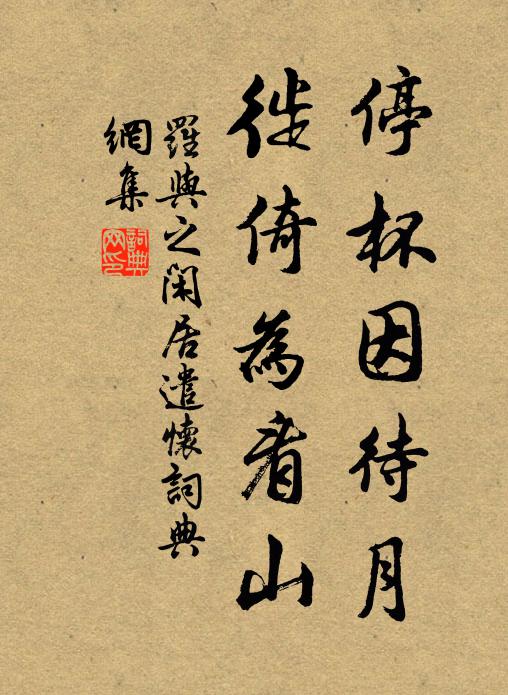 停杯因待月
徙倚為看山
羅與之閑居遣懷詞典
網集
詞典
网印